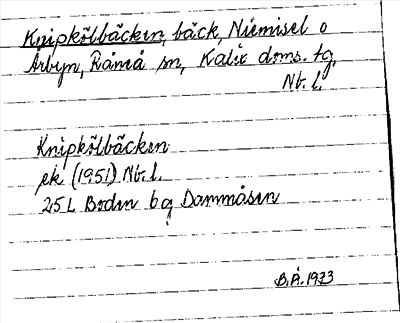 Knipkölbäcken, bäck, Niemisel o
Årbyn, Råneå sn, Kalix doms. tg,
Nb. l.
Knipkölbäcken
ek (1951) Nb. l.
25 L Boden bq Dammåsen
B.Å. 1973